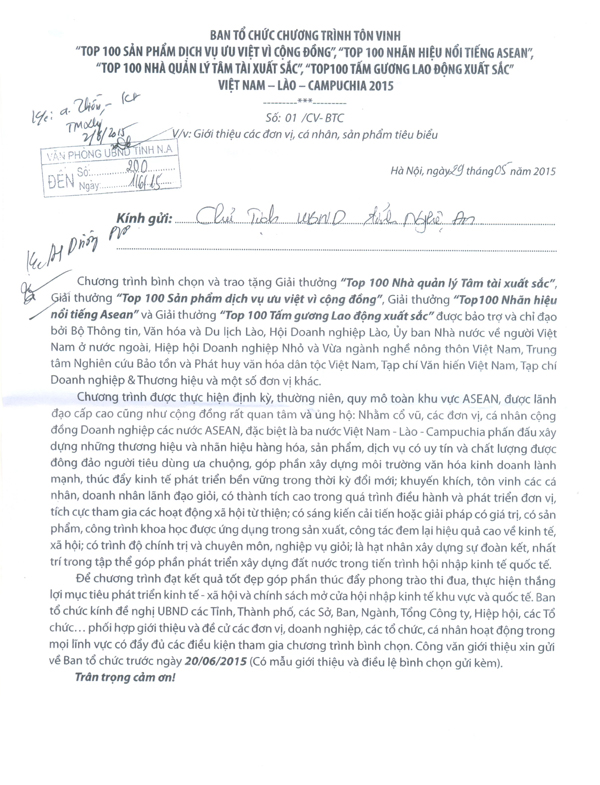 BAN TỔ CHỨC CHƯƠNG TRÌNH TÔN VINH
“TOP 100 SẢN PHẨM DỊCH VỤ ƯU VIỆT VÌ CỘNG ĐỒNG”, “TOP 100 NHÃN HIỆU NỔI TIẾNG ASEAN”,
“TOP 100 NHÀ QUẢN LÝ TÂM TÀI XUẤT SẮC”, “TOP100 TẤM GƯƠNG LAO ĐỘNG XUẤT SẮC”
VIỆT NAM – LÀO – CAMPUCHIA 2015
---------***---------
Số: 01 /CV- BTC
V/v: Giới thiệu các đơn vị, cá nhân, sản phẩm tiêu biểu
2/6/2015
VĂN PHÒNG UBND TỈNH N.A
ĐẾN Số: 200
Ngày 1/6/15
Hà Nội, ngày 29 tháng 05 năm 2015
Kính gửi: Chủ Tịch UBND tỉnh Nghệ An
Chương trình bình chọn và trao tặng Giải thưởng “Top 100 Nhà quản lý Tâm tài xuất sắc”,
Giải thưởng “Top 100 Sản phẩm dịch vụ ưu việt vì cộng đồng”, Giải thưởng “Top100 Nhãn hiệu
nổi tiếng Asean” và Giải thưởng “Top 100 Tấm gương Lao động xuất sắc” được bảo trợ và chỉ đạo
bởi Bộ Thông tin, Văn hóa và Du lịch Lào, Hội Doanh nghiệp Lào, Ủy ban Nhà nước về người Việt
Nam ở nước ngoài, Hiệp hội Doanh nghiệp Nhỏ và Vừa ngành nghề nông thôn Việt Nam, Trung
tâm Nghiên cứu Bảo tồn và Phát huy văn hóa dân tộc Việt Nam, Tạp chí Văn hiến Việt Nam, Tạp chí
Doanh nghiệp & Thương hiệu và một số đơn vị khác.
Chương trình được thực hiện định kỳ, thường niên, quy mô toàn khu vực ASEAN, được lãnh
đạo cấp cao cũng như cộng đồng rất quan tâm và ủng hộ: Nhằm cổ vũ, các đơn vị, cá nhân cộng
đồng Doanh nghiệp các nước ASEAN, đặc biệt là ba nước Việt Nam - Lào - Campuchia phấn đấu xây
dựng những thương hiệu và nhãn hiệu hàng hóa, sản phẩm, dịch vụ có uy tín và chất lượng được
đông đảo người tiêu dùng ưa chuộng, góp phần xây dựng môi trường văn hóa kinh doanh lành
mạnh, thúc đẩy kinh tế phát triển bền vững trong thời kỳ đổi mới; khuyến khích, tôn vinh các cá
nhân, doanh nhân lãnh đạo giỏi, có thành tích cao trong quá trình điều hành và phát triển đơn vị,
tích cực tham gia các hoạt động xã hội từ thiện; có sáng kiến cải tiến hoặc giải pháp có giá trị, có sản
phẩm, công trình khoa học được ứng dụng trong sản xuất, công tác đem lại hiệu quả cao về kinh tế,
xã hội; có trình độ chính trị và chuyên môn, nghiệp vụ giỏi; là hạt nhân xây dựng sự đoàn kết, nhất
trí trong tập thể góp phần phát triển xây dựng đất nước trong tiến trình hội nhập kinh tế quốc tế.
Để chương trình đạt kết quả tốt đẹp góp phần thúc đẩy phong trào thi đua, thực hiện thắng
lợi mục tiêu phát triển kinh tế - xã hội và chính sách mở cửa hội nhập kinh tế khu vực và quốc tế. Ban
tổ chức kính đề nghị UBND các Tỉnh, Thành phố, các Sở, Ban, Ngành, Tổng Công ty, Hiệp hội, các Tổ
chức… phối hợp giới thiệu và đề cử các đơn vị, doanh nghiệp, các tổ chức, cá nhân hoạt động trong
mọi lĩnh vực có đầy đủ các điều kiện tham gia chương trình bình chọn. Công văn giới thiệu xin gửi
về Ban tổ chức trước ngày 20/06/2015 (Có mẫu giới thiệu và điều lệ bình chọn gửi kèm).
Trân trọng cảm ơn!